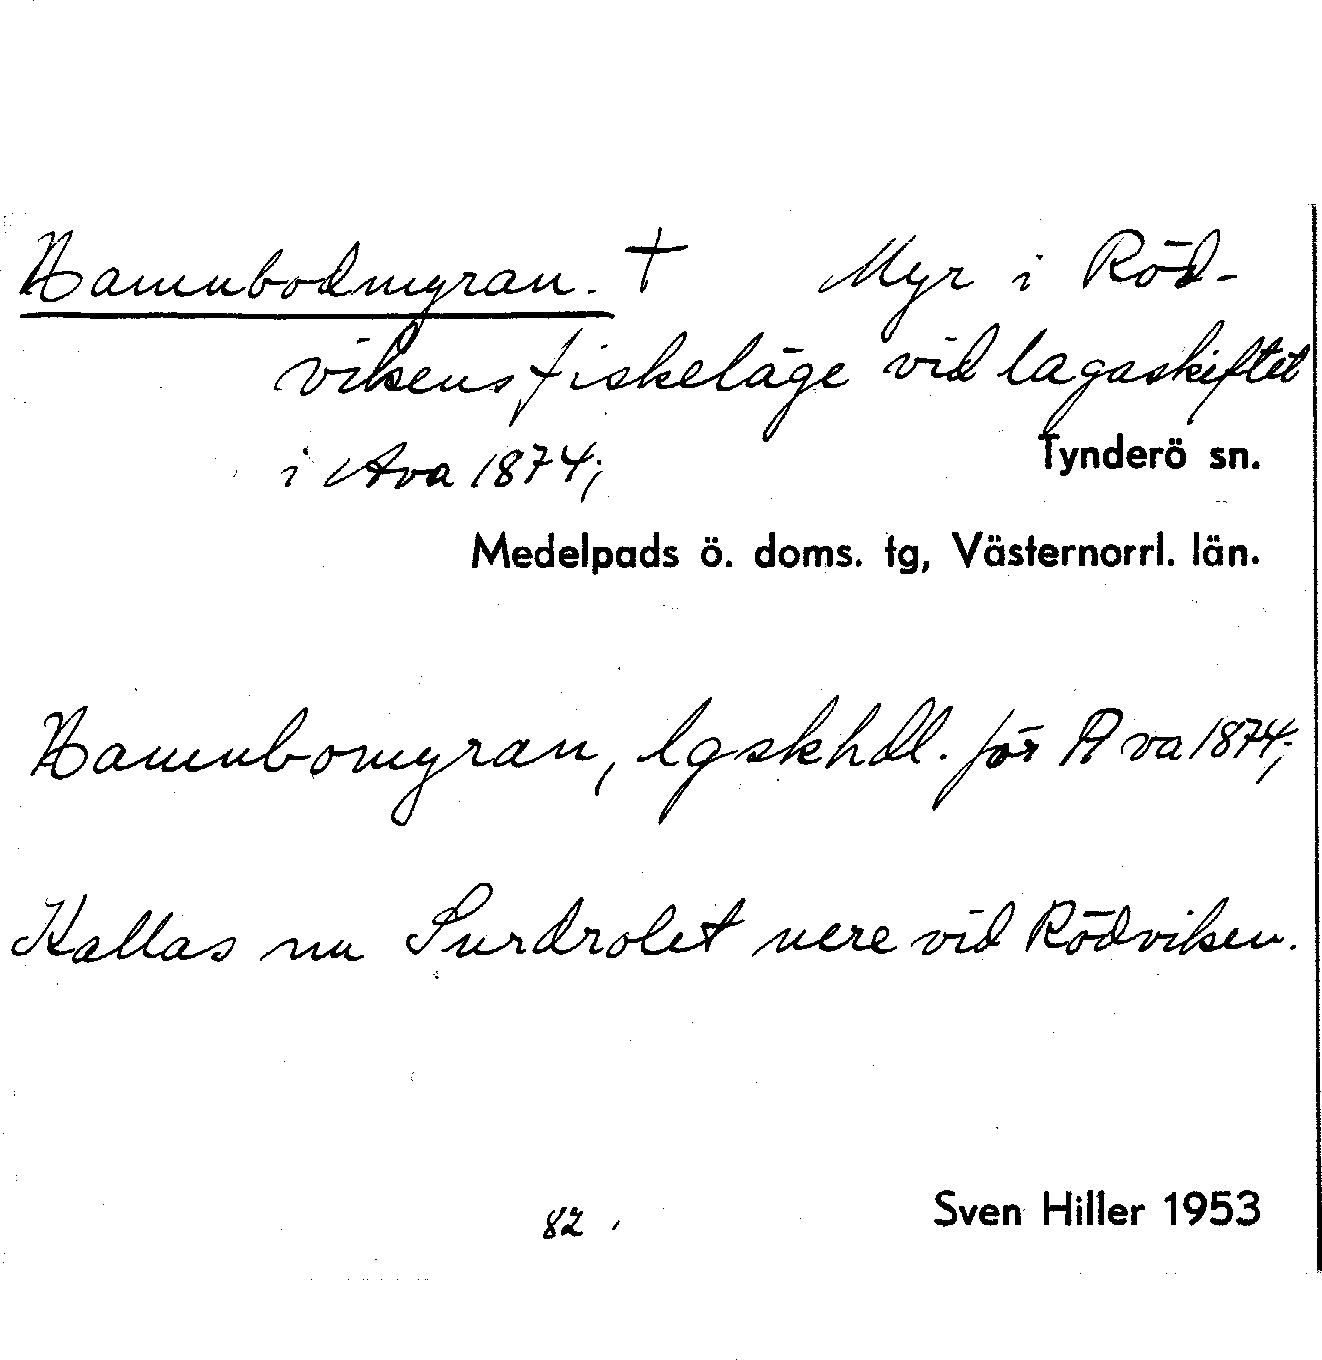 Hamnbodmyran. † Myr i Röd-
vikens fiskeläge vid lagaskiftet
i Ava 1874;
Tynderö sn.
Medelpads ö. doms. tg, Västernorrl. län.
Hamnbomyran, lgskhdl. för Ava 1874;
Kallas nu Surdrolet nere vid Rödviken.
82.
Sven Hiller 1953